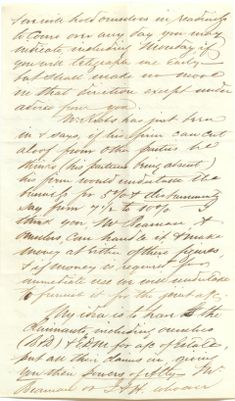 I will hold ourselves in readiness
to come over any day you may
indicate, including Monday if
you will telegraph me early
but shall make no move
in that direction except under
advice from you.
Mr. has just been
in & says, if his firm can act
alone from other parties he
thinks (his partners being absent)
his firm would undertake the
business for 5% & disbursements
say from 7½ to 10%. I
think you, Mr Beaman &
ourselves can handle it & make
money at either of these figures,
& if money is required for
immediate use we will undertake
to furnish it for the
My idea is to have the
claimants, including ourselves
for a/c of Estate,
put all their claims in, giving
you their Powers of Atty. Mr
Beaman or